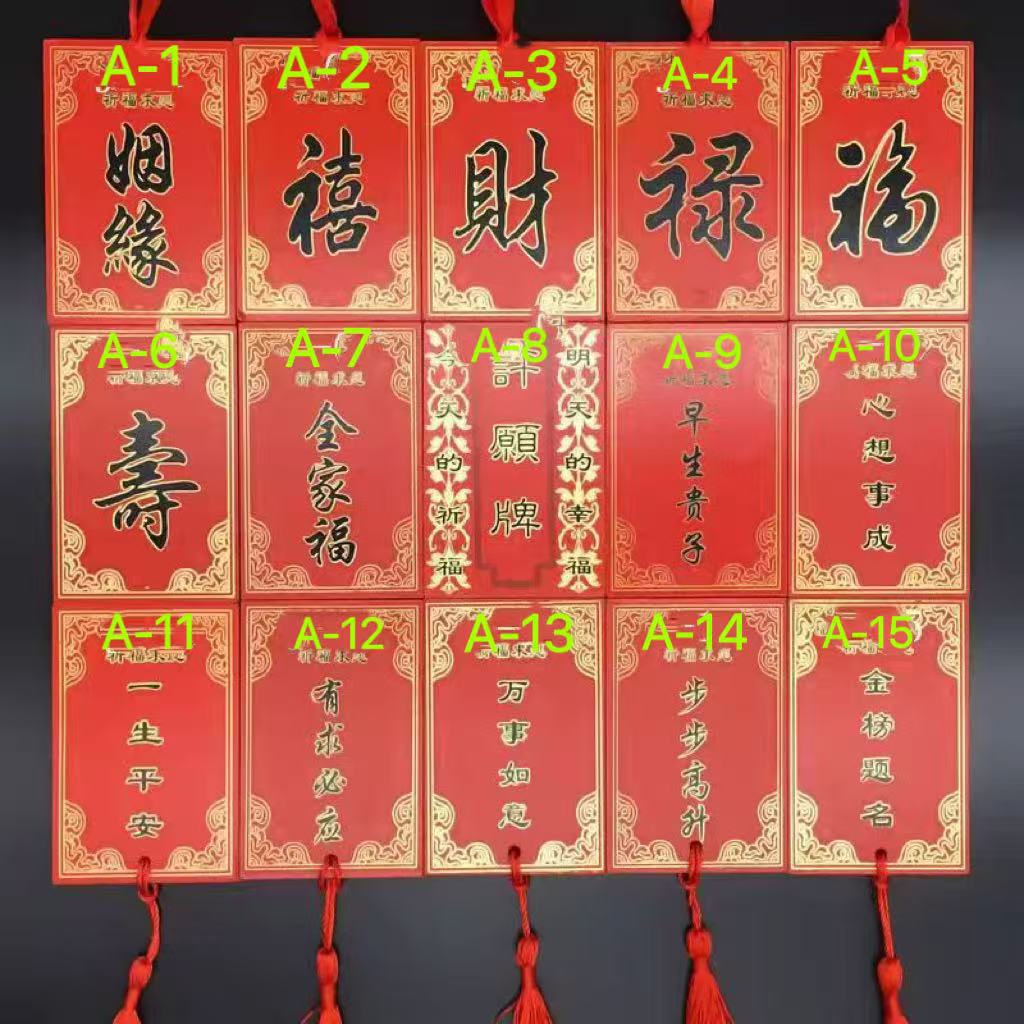 A-1
祈福求愿
姻緣
A-2
祈福求愿
禧
A-3
祈福求愿
財
A-4
祈福求愿
禄
A-5
祈福
福
A-6
祈福求愿
壽
A-7
祈福求愿
全家福
A-8
今天的祈福
許願牌
明天的幸福
A-9
祈福求愿
早生贵子
A-10
福求愿
心想事成
A-11
祈福求愿
一生平安
A-12
祈福求愿
有求必应
A-13
福求愿
万事如意
A-14
祈福求愿
步步高升
A-15
祈福
金榜题名